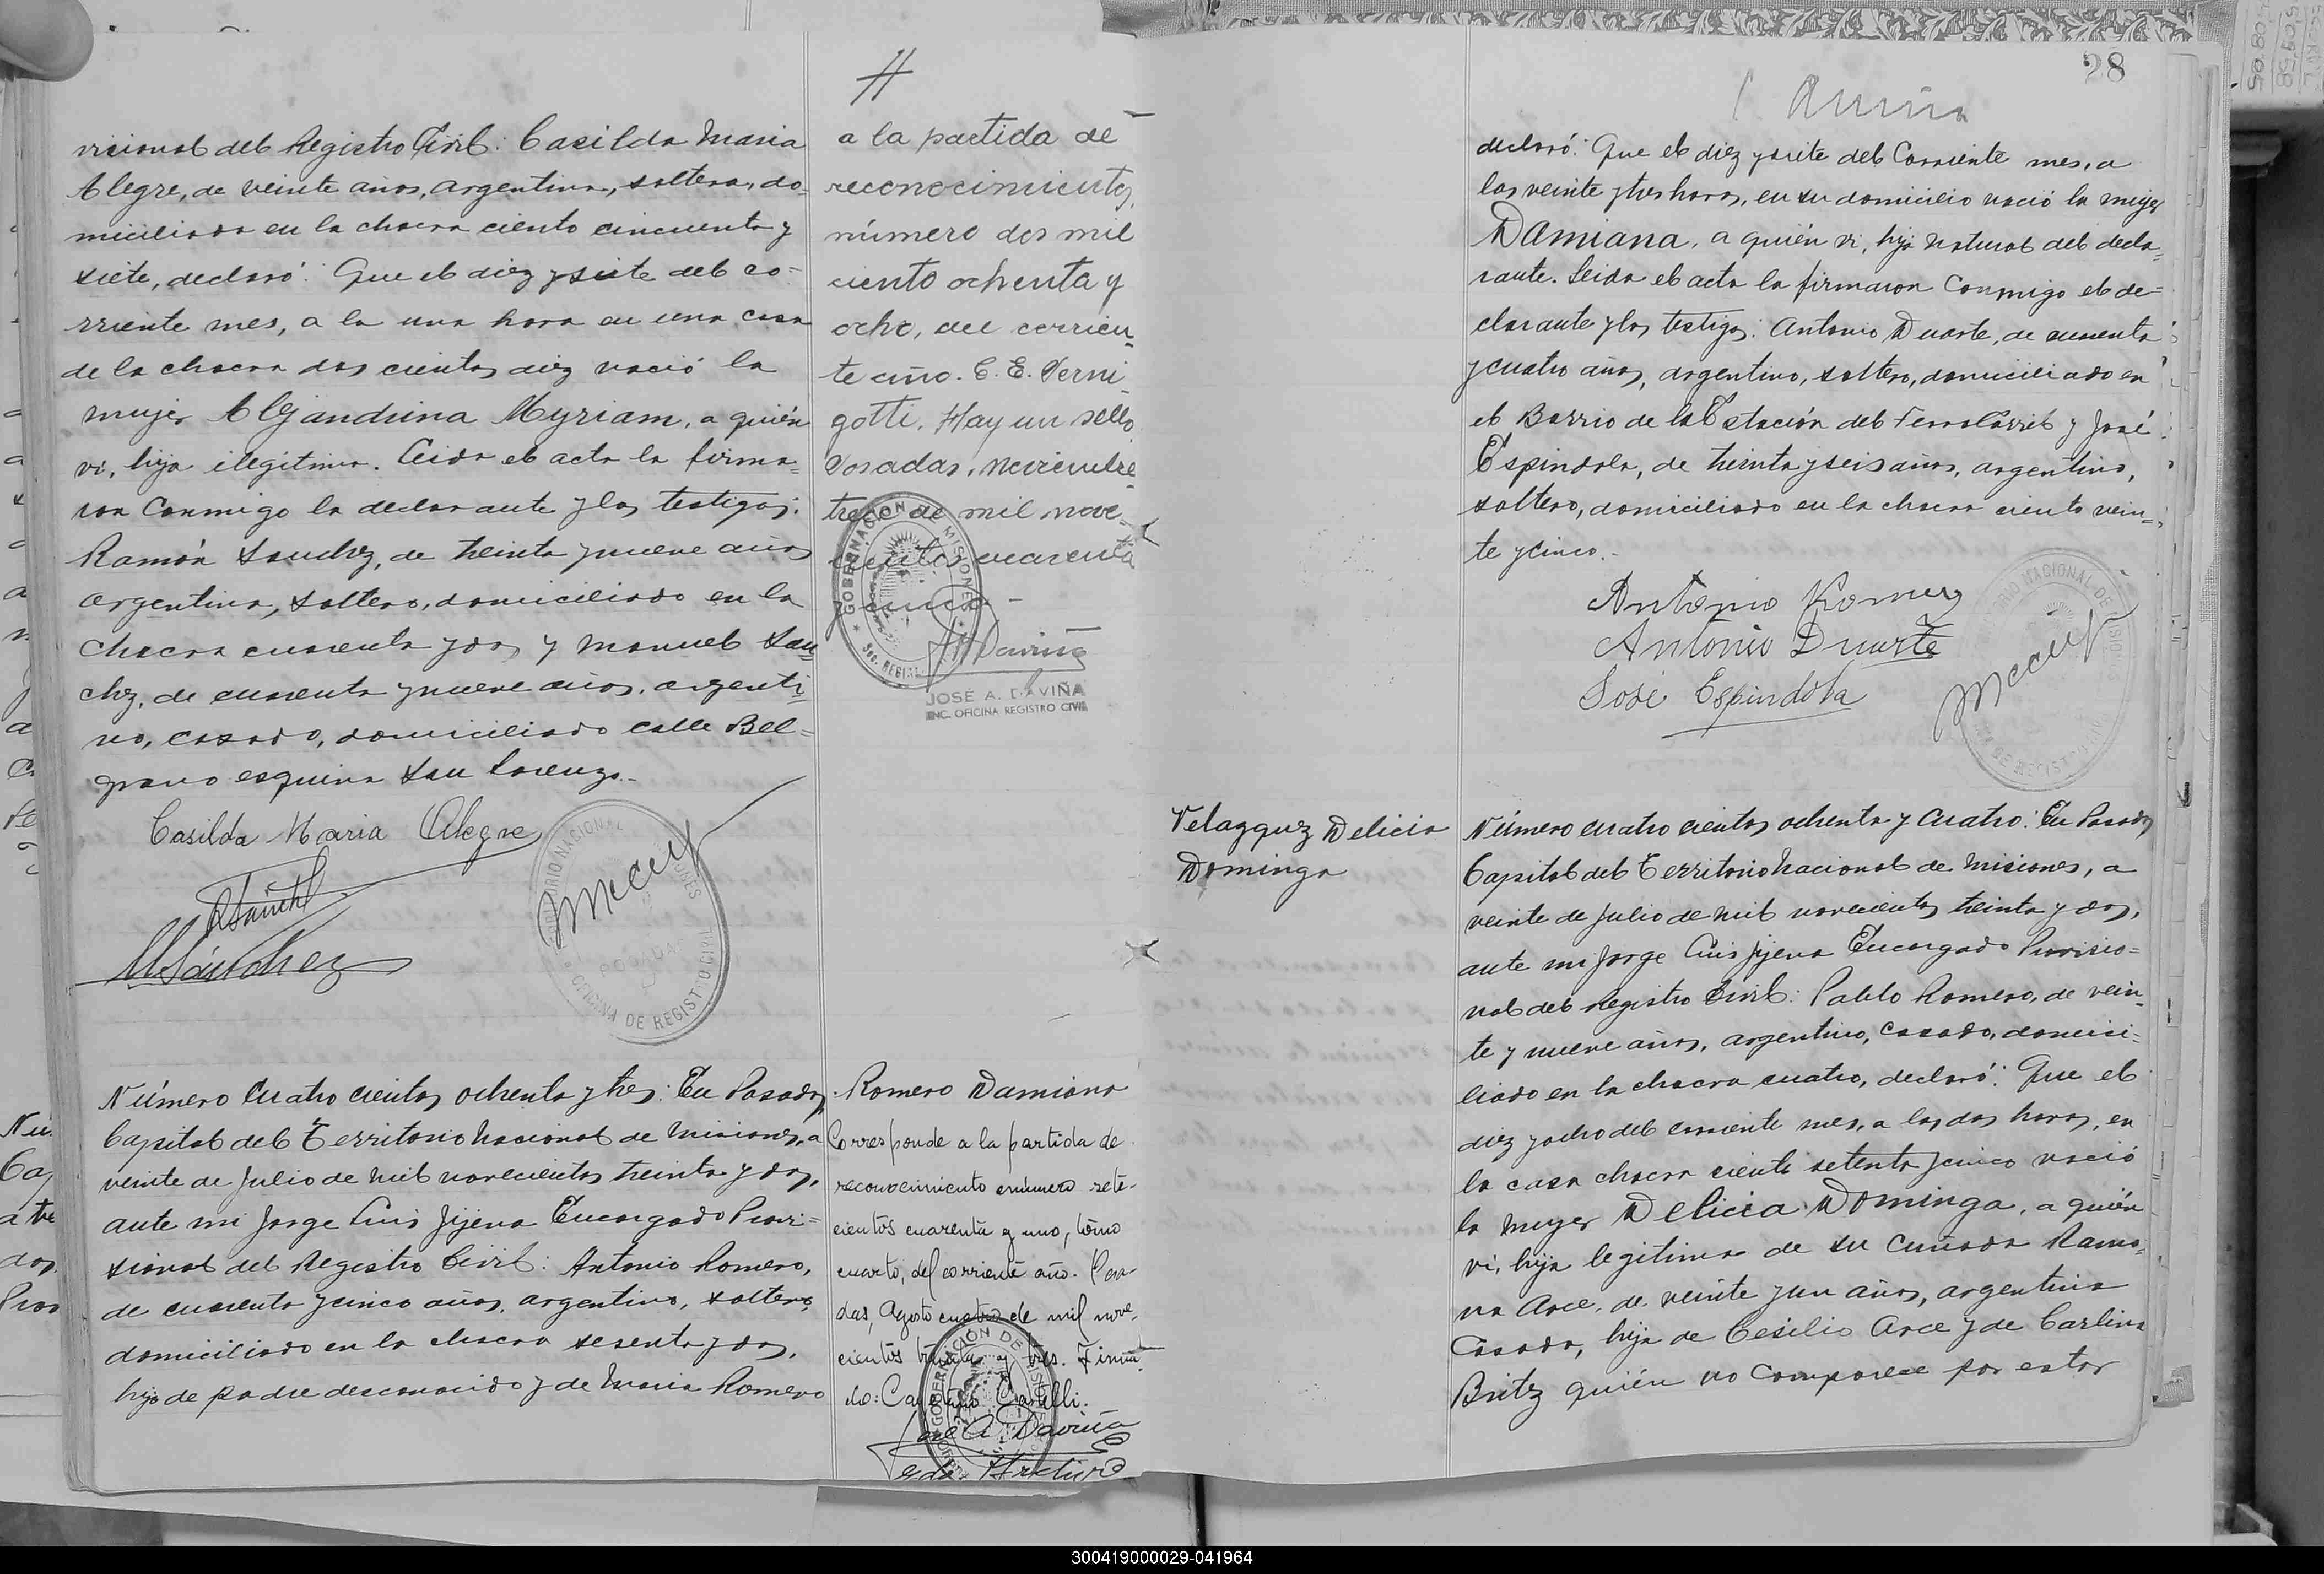 visional del Registro Civil: Casilda Maria
Alegre, de veinte años, argentina, soltera, do-
miciliada en la chacra ciento cincuenta y
siete, declaró: Que el diez y siete del co-
rriente mes, a la una hora en una casa
de la chacra dos cientos diez nació la
mujer Alejandrina Myriam, a quién
vi, hija ilegitima. Leida el acta la firma-
ron conmigo la declarante y los testigos:
Ramón Sanchez, de treinta y nueve años
argentino, soltero, domiciliado en la
chacra cuarenta y dos y Manuel San-
chez, de cuarenta y nueve años, argenti-
no, casado, domiciliado calle Bel-
grano esquina San Lorenzo.-
Casilda Maria Alegre
RSanchez
MSánchez
TERRITORIO NACIONAL DE MISIONES
POSADAS
OFICINA DE REGISTRO CIVIL
#
a la partida de
reconocimiento,
número dos mil
ciento ochenta y
ocho, del corrien-
te año. C. E. Verni
gotti. Hay un sello
Posadas, noviembre
trece de mil nove-
cientos cuarenta
y cinco.-
GOBERNACIÓN DE MISIONES
JADaviña
JOSÉ A. DAVIÑA
ENC. OFICINA REGISTRO CIVIL
Número cuatro cientos ochenta y tres: En Posadas,
Capital del Territorio Nacional de Misiones, a
veinte de Julio de mil novecientos treinta y dos,
ante mi Jorge Luis Jijena Encargado Provi-
sional del Registro Civil: Antonio Romero,
de cuarenta y cinco años, argentino, soltero,
domiciliado en la chacra sesenta y dos,
hijo de padre desconocido y de Maria Romero
Romero Damiana
Corresponde a la partida de
reconocimiento número sete-
cientos cuarenta y uno, tomo
cuarto, del corriente año. Posa-
das, Agosto cuatro de mil nove-
cientos treinta y tres. Firma-
do: Cayetano Castelli.
José A. Daviña
GOBERNACIÓN DE MISIONES
28
declaró: Que el diez y siete del corriente mes, a
las veinte y tres horas, en su domicilio nació la mujer
Damiana, a quién vi, hija natural del decla-
rante. Leida el acta la firmaron conmigo el de-
clarante y los testigos: Antonio Duarte, de cuarenta
y cuatro años, argentino, soltero, domiciliado en
el Barrio de la Estación del Ferro Carril y José
Espindola, de treinta y seis años, argentino,
soltero, domiciliado en la chacra ciento vein-
te y cinco.-
Antonio Romero
Antonio Duarte
José Espindola
Velazquez Delicia
Dominga
Número cuatro cientos ochenta y cuatro: En Posadas
Capital del Territorio Nacional de Misiones, a
veinte de Julio de mil novecientos treinta y dos,
ante mi Jorge Luis Jijena Encargado Provisio-
nal del Registro Civil: Pablo Romero, de vein-
te y nueve años, argentino, casado, domici-
liado en la chacra cuatro, declaró: Que el
diez y ocho del corriente mes, a las dos horas, en
la casa chacra ciento setenta y cinco nació
la mujer Delicia Dominga, a quién
vi, hija legitima de su cuñada Ramo-
na Arce, de veinte y un años, argentina
casada, hija de Cesilio Arce y de Carlina
Britz quién no comparece por estar
300419000029-041964